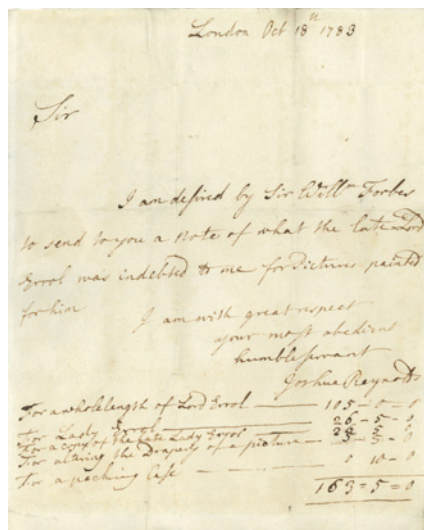 London Oct 18th 1783
Sir
I am desired by Sir Willm Forbes
to send to you a note of what the late Lord
Errol was indebted to me for Pictures painted
for him
I am with great respect
your most obedient
humble servant
Joshua Reynolds
For a whole length of Lord Errol — 105 - 0 - 0
For Lady Errol — 26 - 5 - 0
For a copy of the late Lady Errol — - 0
For altering the Drapery of a picture — 5 - 5 - 0
For a packing Case — 0 10 - 0
163 = 5 = 0